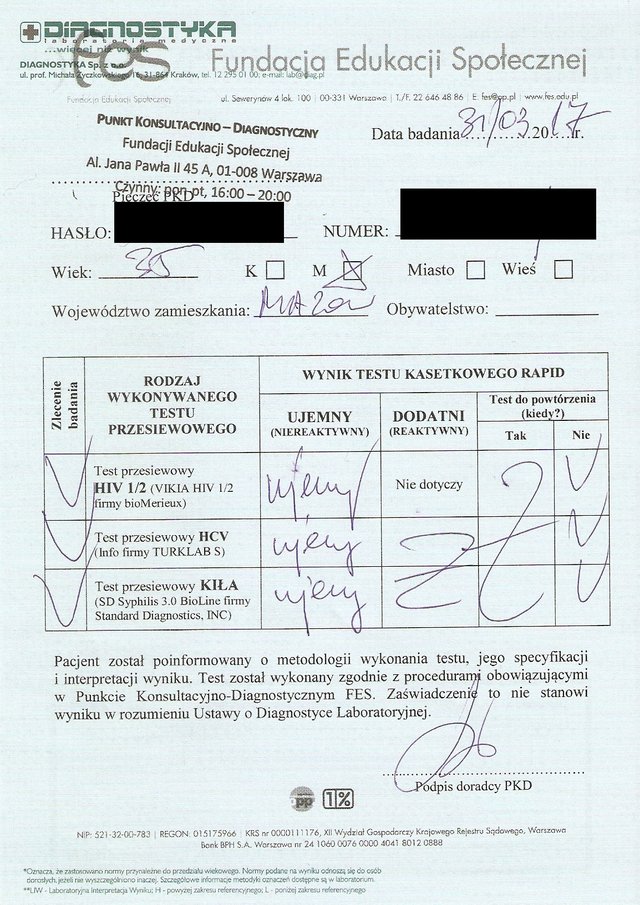 DIAGNOSTYKA
laboratoria medyczne
...więcej niż wynik
DIAGNOSTYKA Sp. z o.o.
ul. prof. Michała Życzkowskiego 16, 31-864 Kraków, tel. 12 295 01 00; e-mail: lab@diag.pl
fes
Fundacja Edukacji Społecznej
Fundacja Edukacji Społecznej
ul. Sewerynów 4 lok. 100 | 00-331 Warszawa | T./F. 22 646 48 86 | E. fes@pp.pl | www.fes.edu.pl
PUNKT KONSULTACYJNO – DIAGNOSTYCZNY
Fundacji Edukacji Społecznej
Al. Jana Pawła II 45 A, 01-008 Warszawa
Czynny: pon-pt, 16:00 – 20:00
Pieczęć PKD
Data badania 31/03.2017r.
HASŁO:
NUMER:
Wiek: 35 K M Miasto Wieś
Województwo zamieszkania: MAZOW Obywatelstwo:
Zlecenie badania
RODZAJ
WYKONYWANEGO
TESTU
PRZESIEWOWEGO
WYNIK TESTU KASETKOWEGO RAPID
UJEMNY
(NIEREAKTYWNY)
DODATNI
(REAKTYWNY)
Test do powtórzenia
(kiedy?)
Tak Nie
Test przesiewowy
HIV 1/2 (VIKIA HIV 1/2
firmy bioMerieux)
ujemny
Nie dotyczy
Test przesiewowy HCV
(Info firmy TURKLAB S)
ujemny
Test przesiewowy KIŁA
(SD Syphilis 3.0 BioLine firmy
Standard Diagnostics, INC)
ujemny
Pacjent został poinformowany o metodologii wykonania testu, jego specyfikacji
i interpretacji wyniku. Test został wykonany zgodnie z procedurami obowiązującymi
w Punkcie Konsultacyjno-Diagnostycznym FES. Zaświadczenie to nie stanowi
wyniku w rozumieniu Ustawy o Diagnostyce Laboratoryjnej.
Podpis doradcy PKD
pp 1%
NIP: 521-32-00-783 | REGON: 015175966 | KRS nr 0000111176, XII Wydział Gospodarczy Krajowego Rejestru Sądowego, Warszawa
Bank BPH S.A. Warszawa nr 24 1060 0076 0000 4041 8012 0888
*Oznacza, że zastosowano normy przynależne do przedziału wiekowego. Normy podane na wyniku odnoszą się do osób
dorosłych, jeżeli nie wyszczególniono inaczej. Szczegółowe informacje metodyki oznaczeń dostępne są w laboratorium.
**LIW - Laboratoryjna Interpretacja Wyniku; H - powyżej zakresu referencyjnego; L - poniżej zakresu referencyjnego